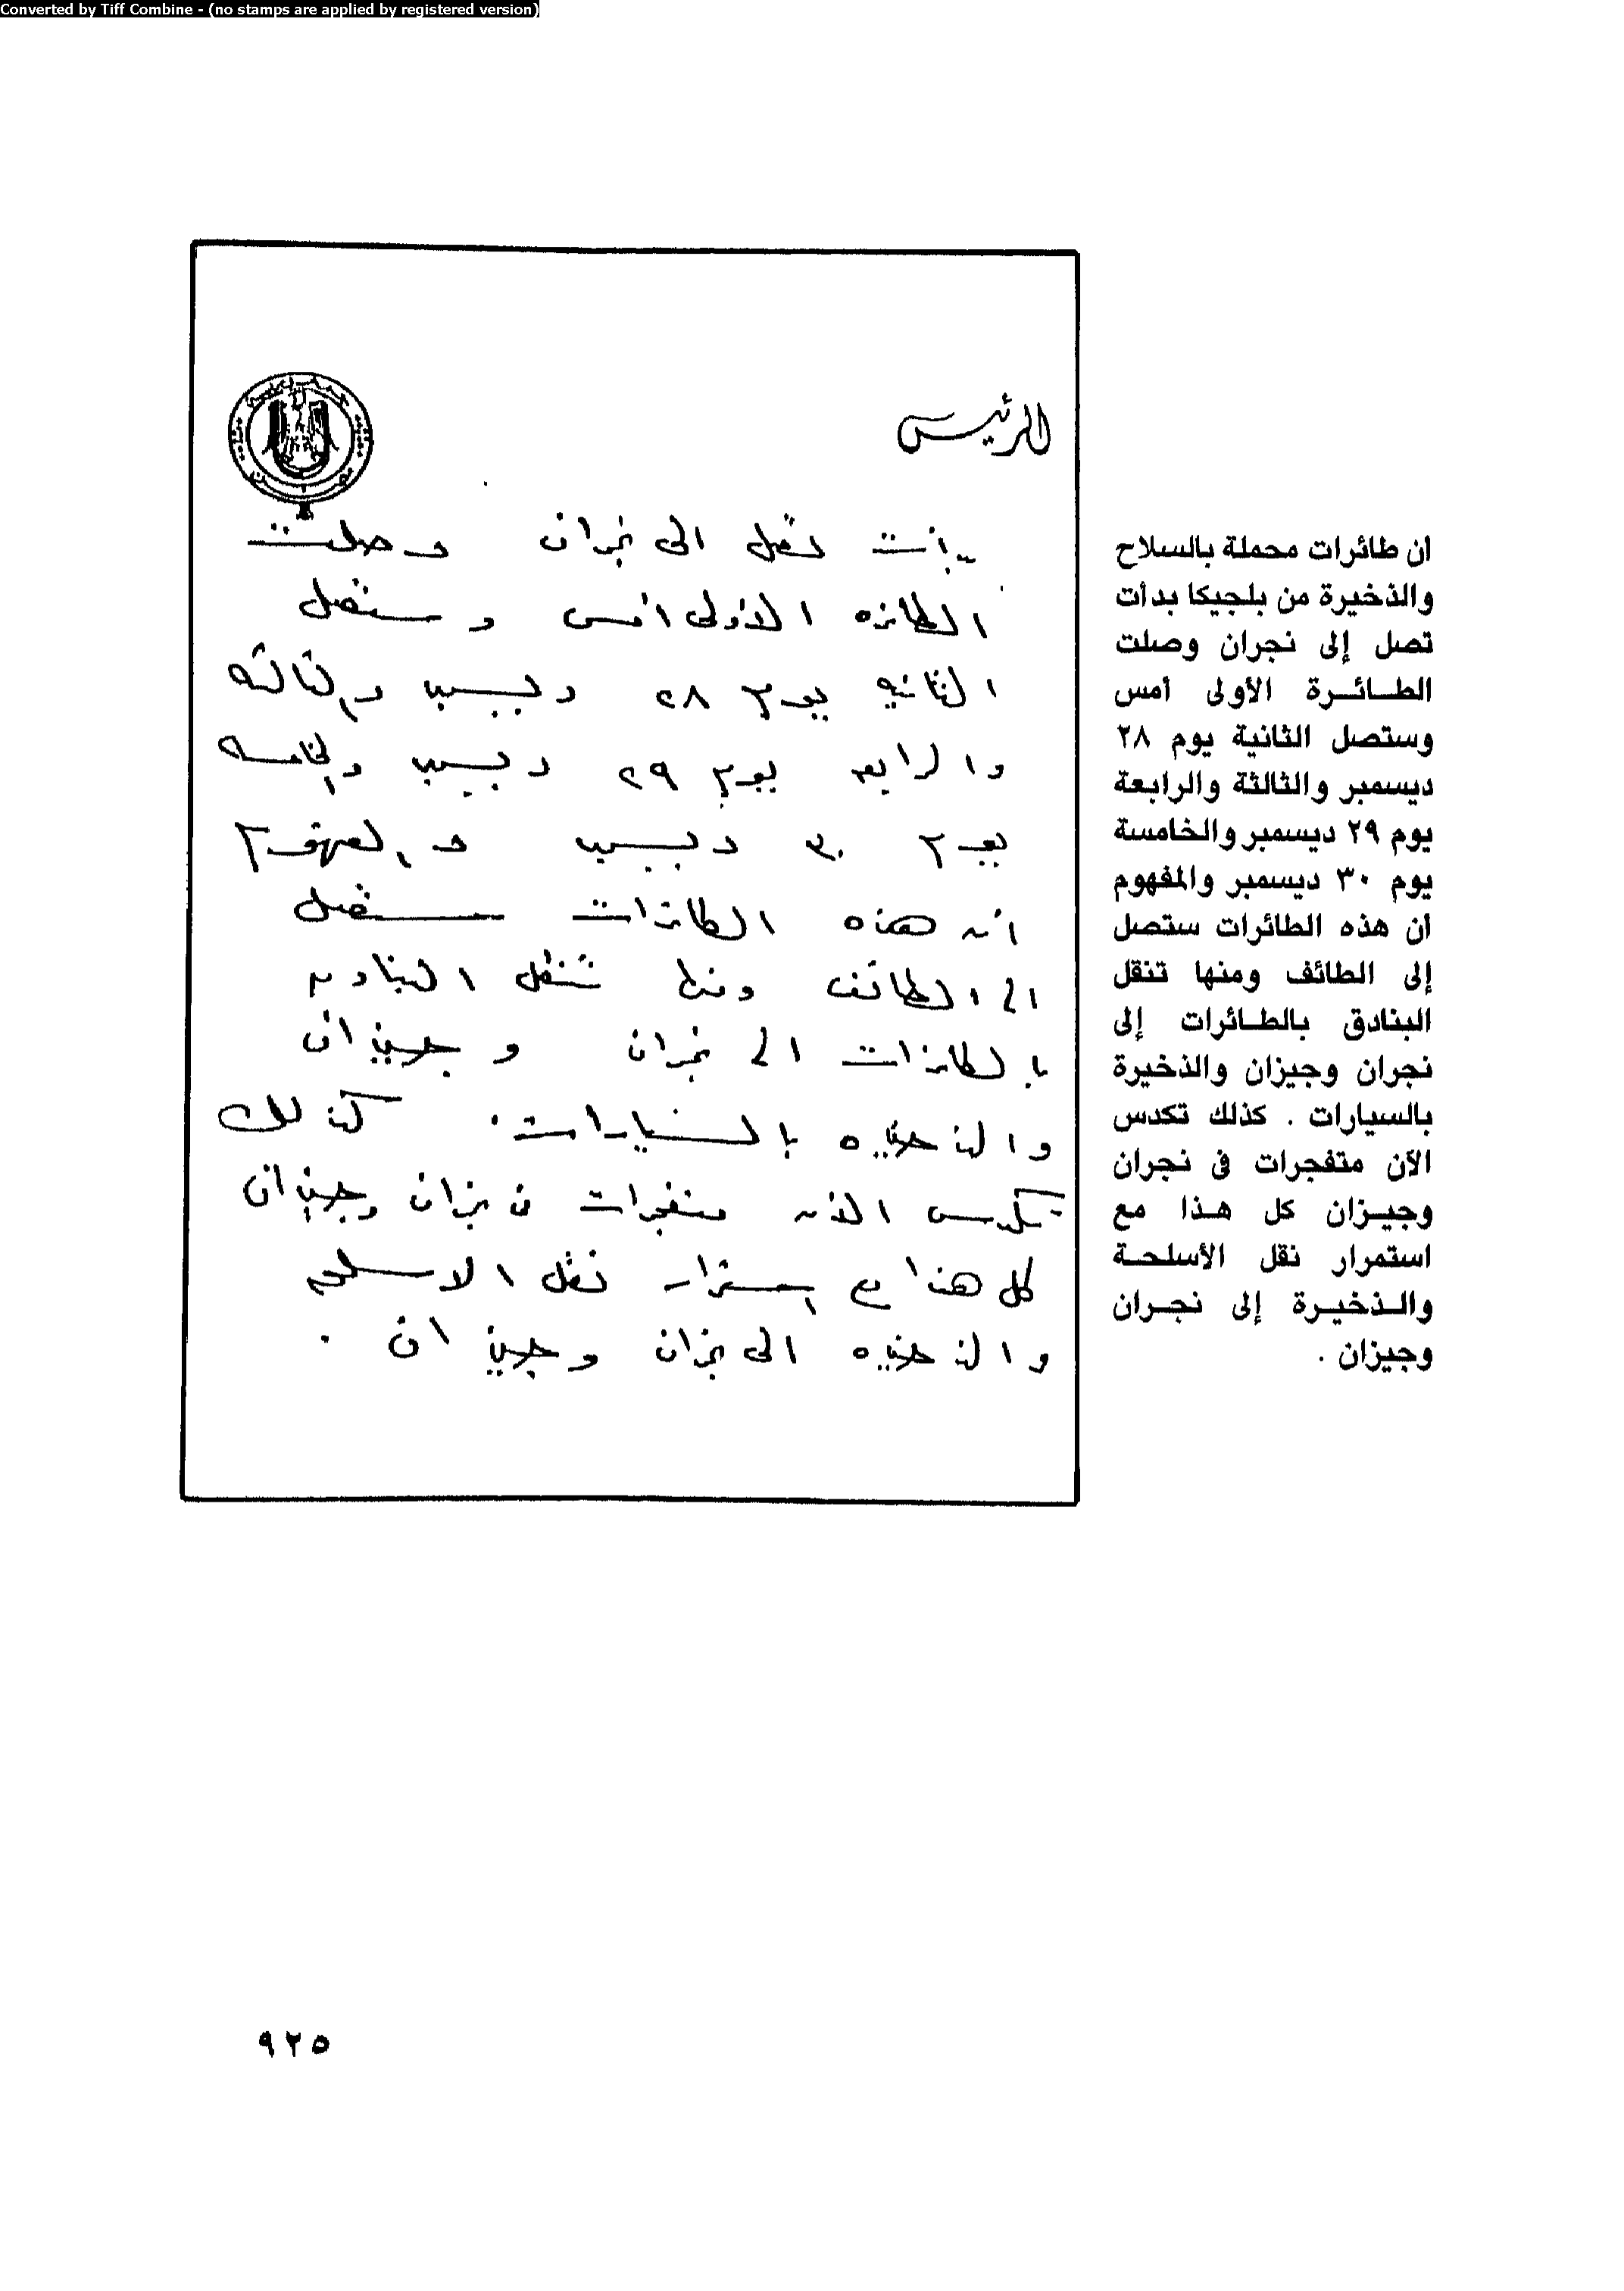 Converted by Tiff Combine - (no stamps are applied by registered version)
الرئيس
بدأت تصل الى نجران وصلت
الطائره الاولى امس وستصل
الثانيه يوم ٢٨ ديسمبر والثالثه
والرابعه يوم ٢٩ ديسمبر والخامسه
يوم ٣٠ ديسمبر والمفهوم
ان هذه الطائرات ستصل
الى الطائف ومنها تنقل البنادق
بالطائرات الى نجران وجيزان
والذخيره بالسيارات . كذلك
تكدس الان متفجرات فى نجران وجيزان
كل هذا مع استمرار نقل الاسلحه
والذخيره الى نجران وجيزان .
ان طائرات محملة بالسلاح
والذخيرة من بلجيكا بدأت
تصل إلى نجران وصلت
الطائرة الأولى أمس
وستصل الثانية يوم ٢٨
ديسمبر والثالثة والرابعة
يوم ٢٩ ديسمبر والخامسة
يوم ٣٠ ديسمبر والمفهوم
أن هذه الطائرات ستصل
إلى الطائف ومنها تنقل
البنادق بالطائرات إلى
نجران وجيزان والذخيرة
بالسيارات . كذلك تكدس
الآن متفجرات فى نجران
وجيزان كل هذا مع
استمرار نقل الأسلحة
والذخيرة إلى نجران
وجيزان .
٩٢٥